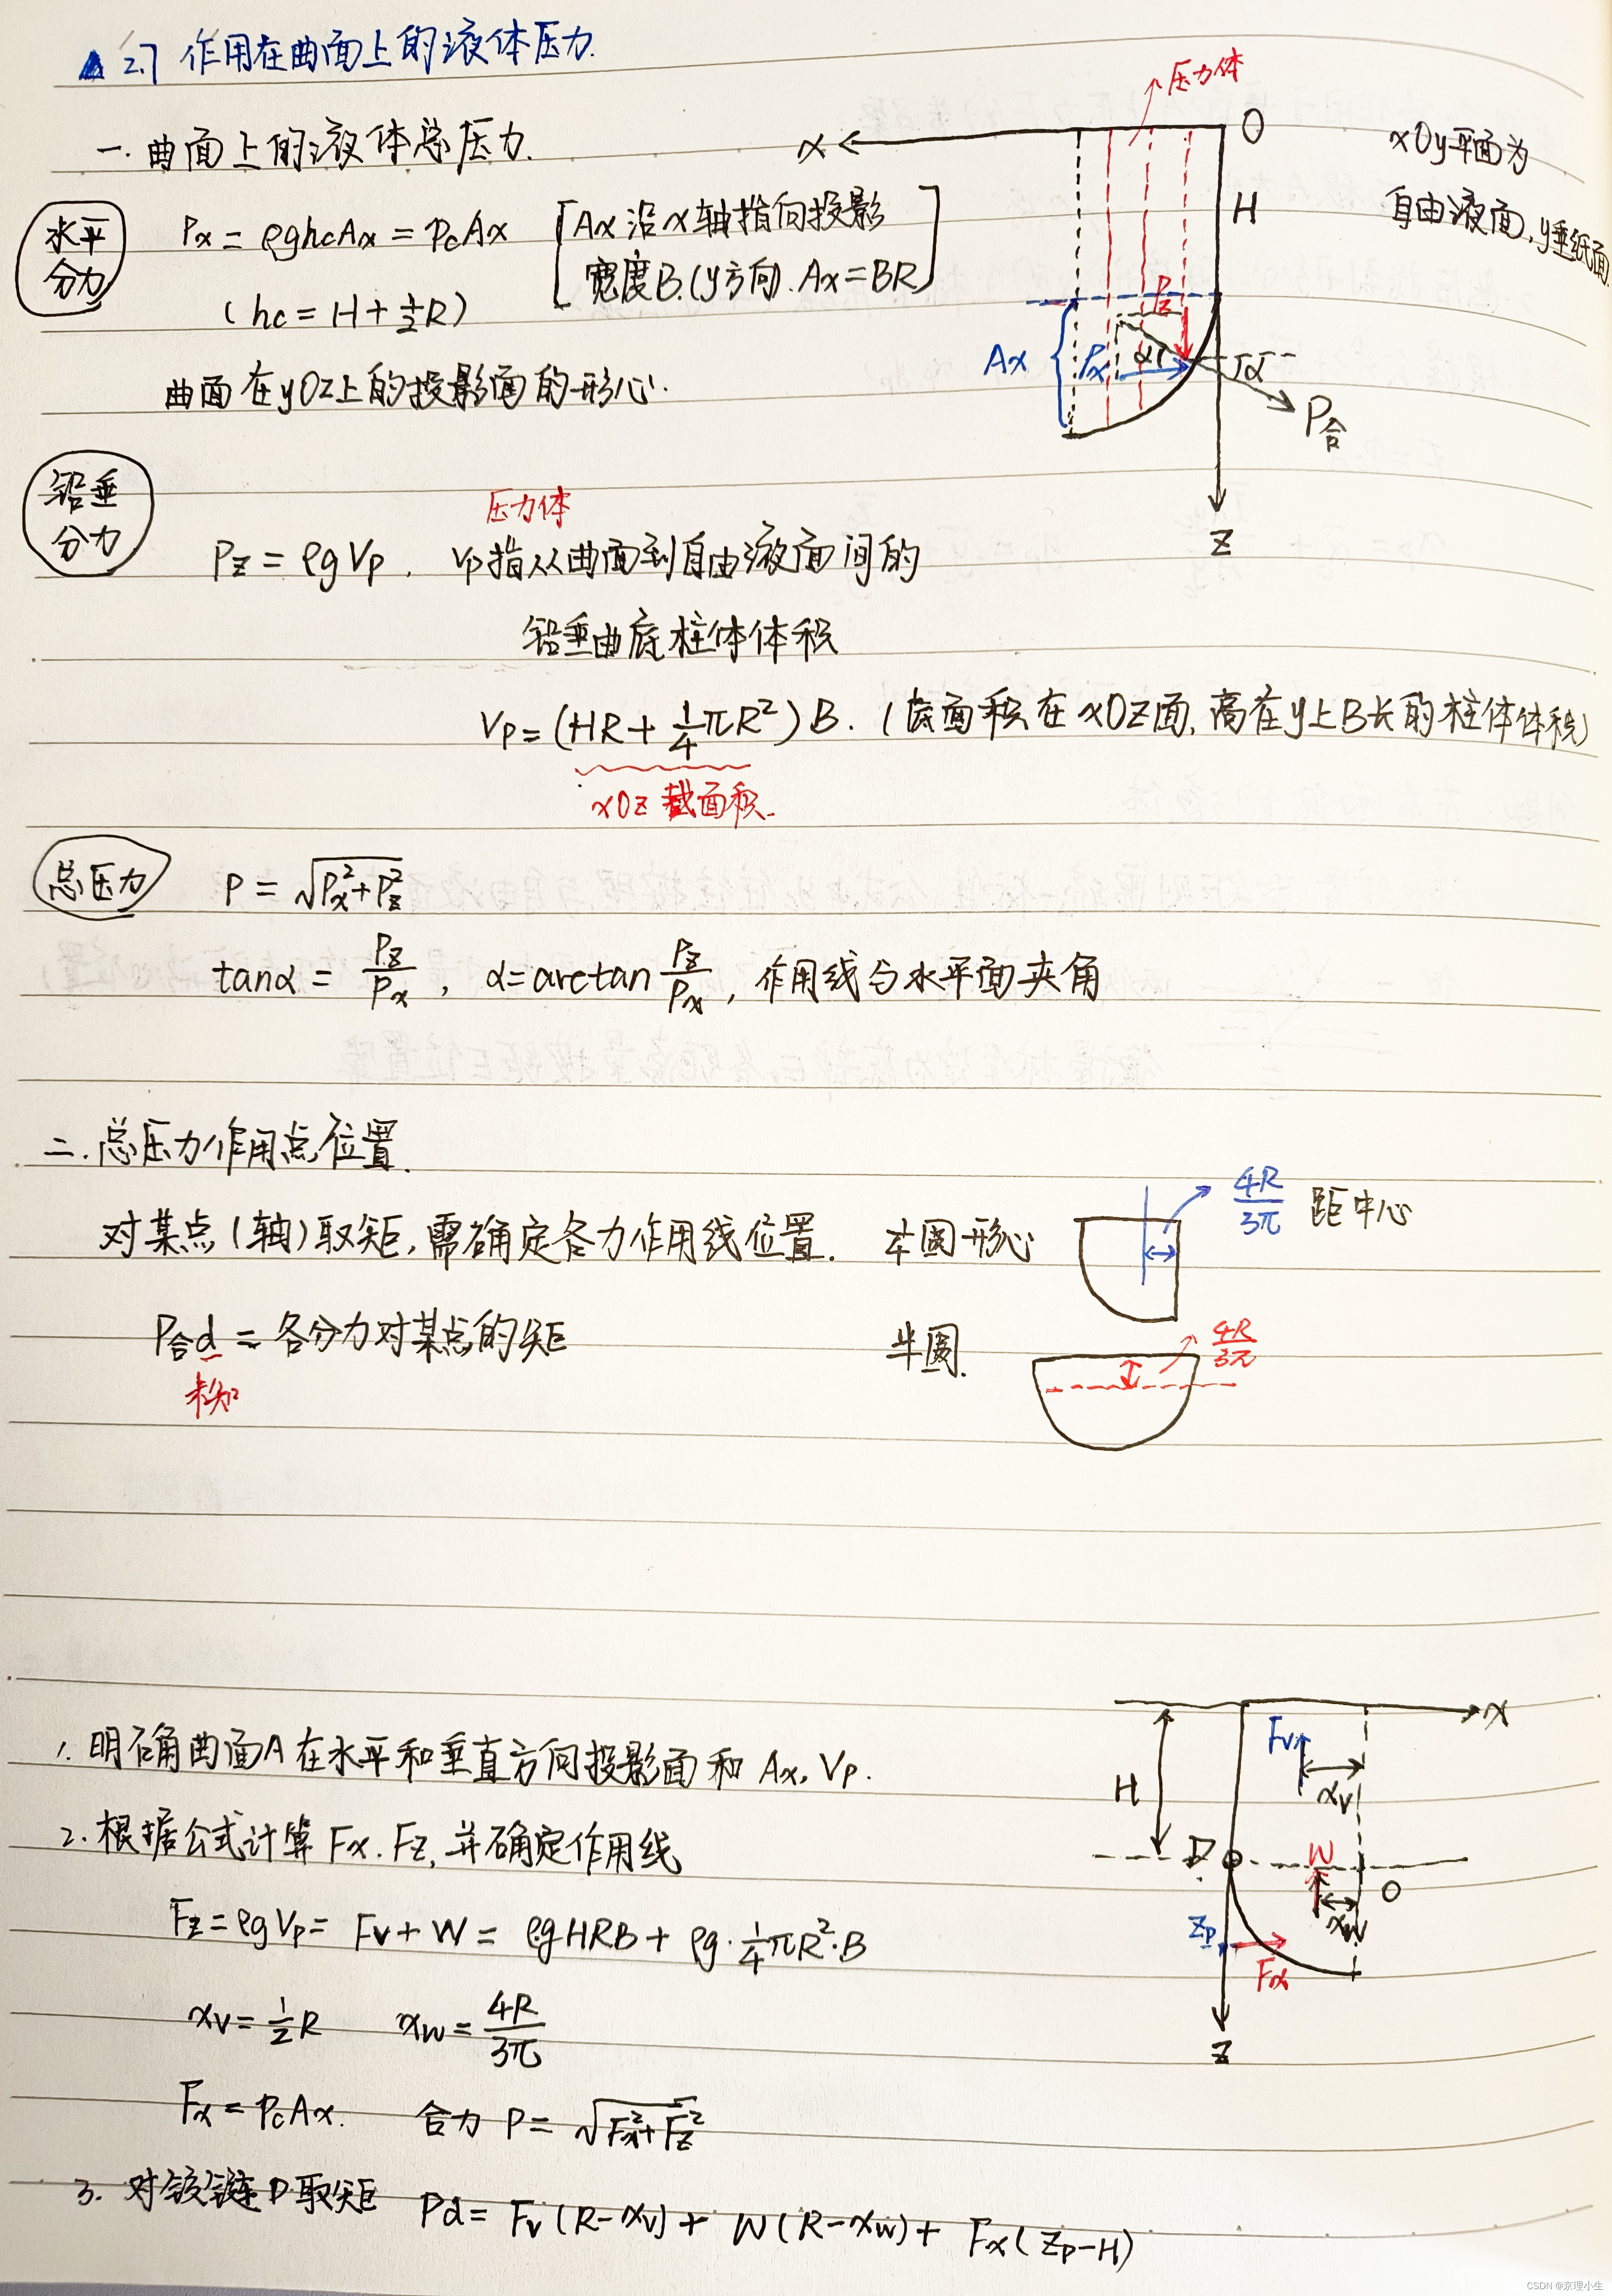 ▲ 2.7 作用在曲面上的液体压力.
一. 曲面上的液体总压力.
水平分力
Px = ρghcAx = pcAx
[Ax 沿x轴指向投影
宽度B.(y方向). Ax = BR]
(hc = H + 1/2 R)
曲面在yOz上的投影面的形心.
压力体
x
O
H
xOy平面为
自由液面, y垂纸面
Pz
Ax
Px
α
α
P合
z
铅垂分力
压力体
Pz = ρgVp. Vp指从曲面到自由液面间的
铅垂曲底柱体体积
Vp = (HR + 1/4 πR²)B. (底面积在xOz面, 高在y上B长的柱体体积)
xOz 截面积.
总压力
P = √(Px² + Pz²)
tanα = Pz/Px, α = arctan Pz/Px, 作用线与水平面夹角
二. 总压力作用点位置.
对某点(轴)取矩, 需确定各力作用线位置.
P合d = 各分力对某点的矩
未知
圆形心
4R/3π 距中心
半圆.
4R/3π
1. 明确曲面A在水平和垂直方向投影面和 Ax, Vp.
2. 根据公式计算 Fx. Fz, 并确定作用线
Fz = ρgVp = Fv + W = ρgHRB + ρg·1/4 πR²·B
xv = 1/2 R xw = 4R/3π
Fx = pcAx. 合力 P = √(Fx² + Fz²)
3. 对铰链D取矩 Pd = Fv(R-xv) + W(R-xw) + Fx(Zp-H)
x
Fv
H
xv
D
W
O
xw
Zp
Fx
z
CSDN @京理小生